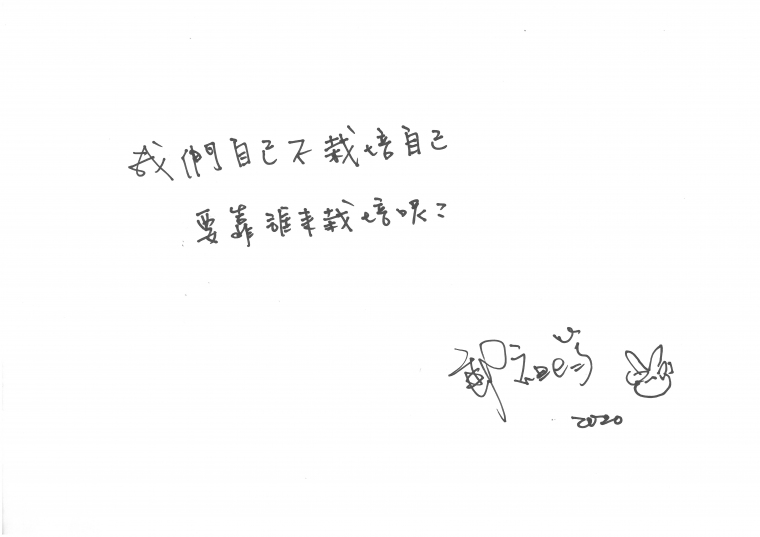 我們自己不栽培自己
要靠誰來栽培呢?
2020